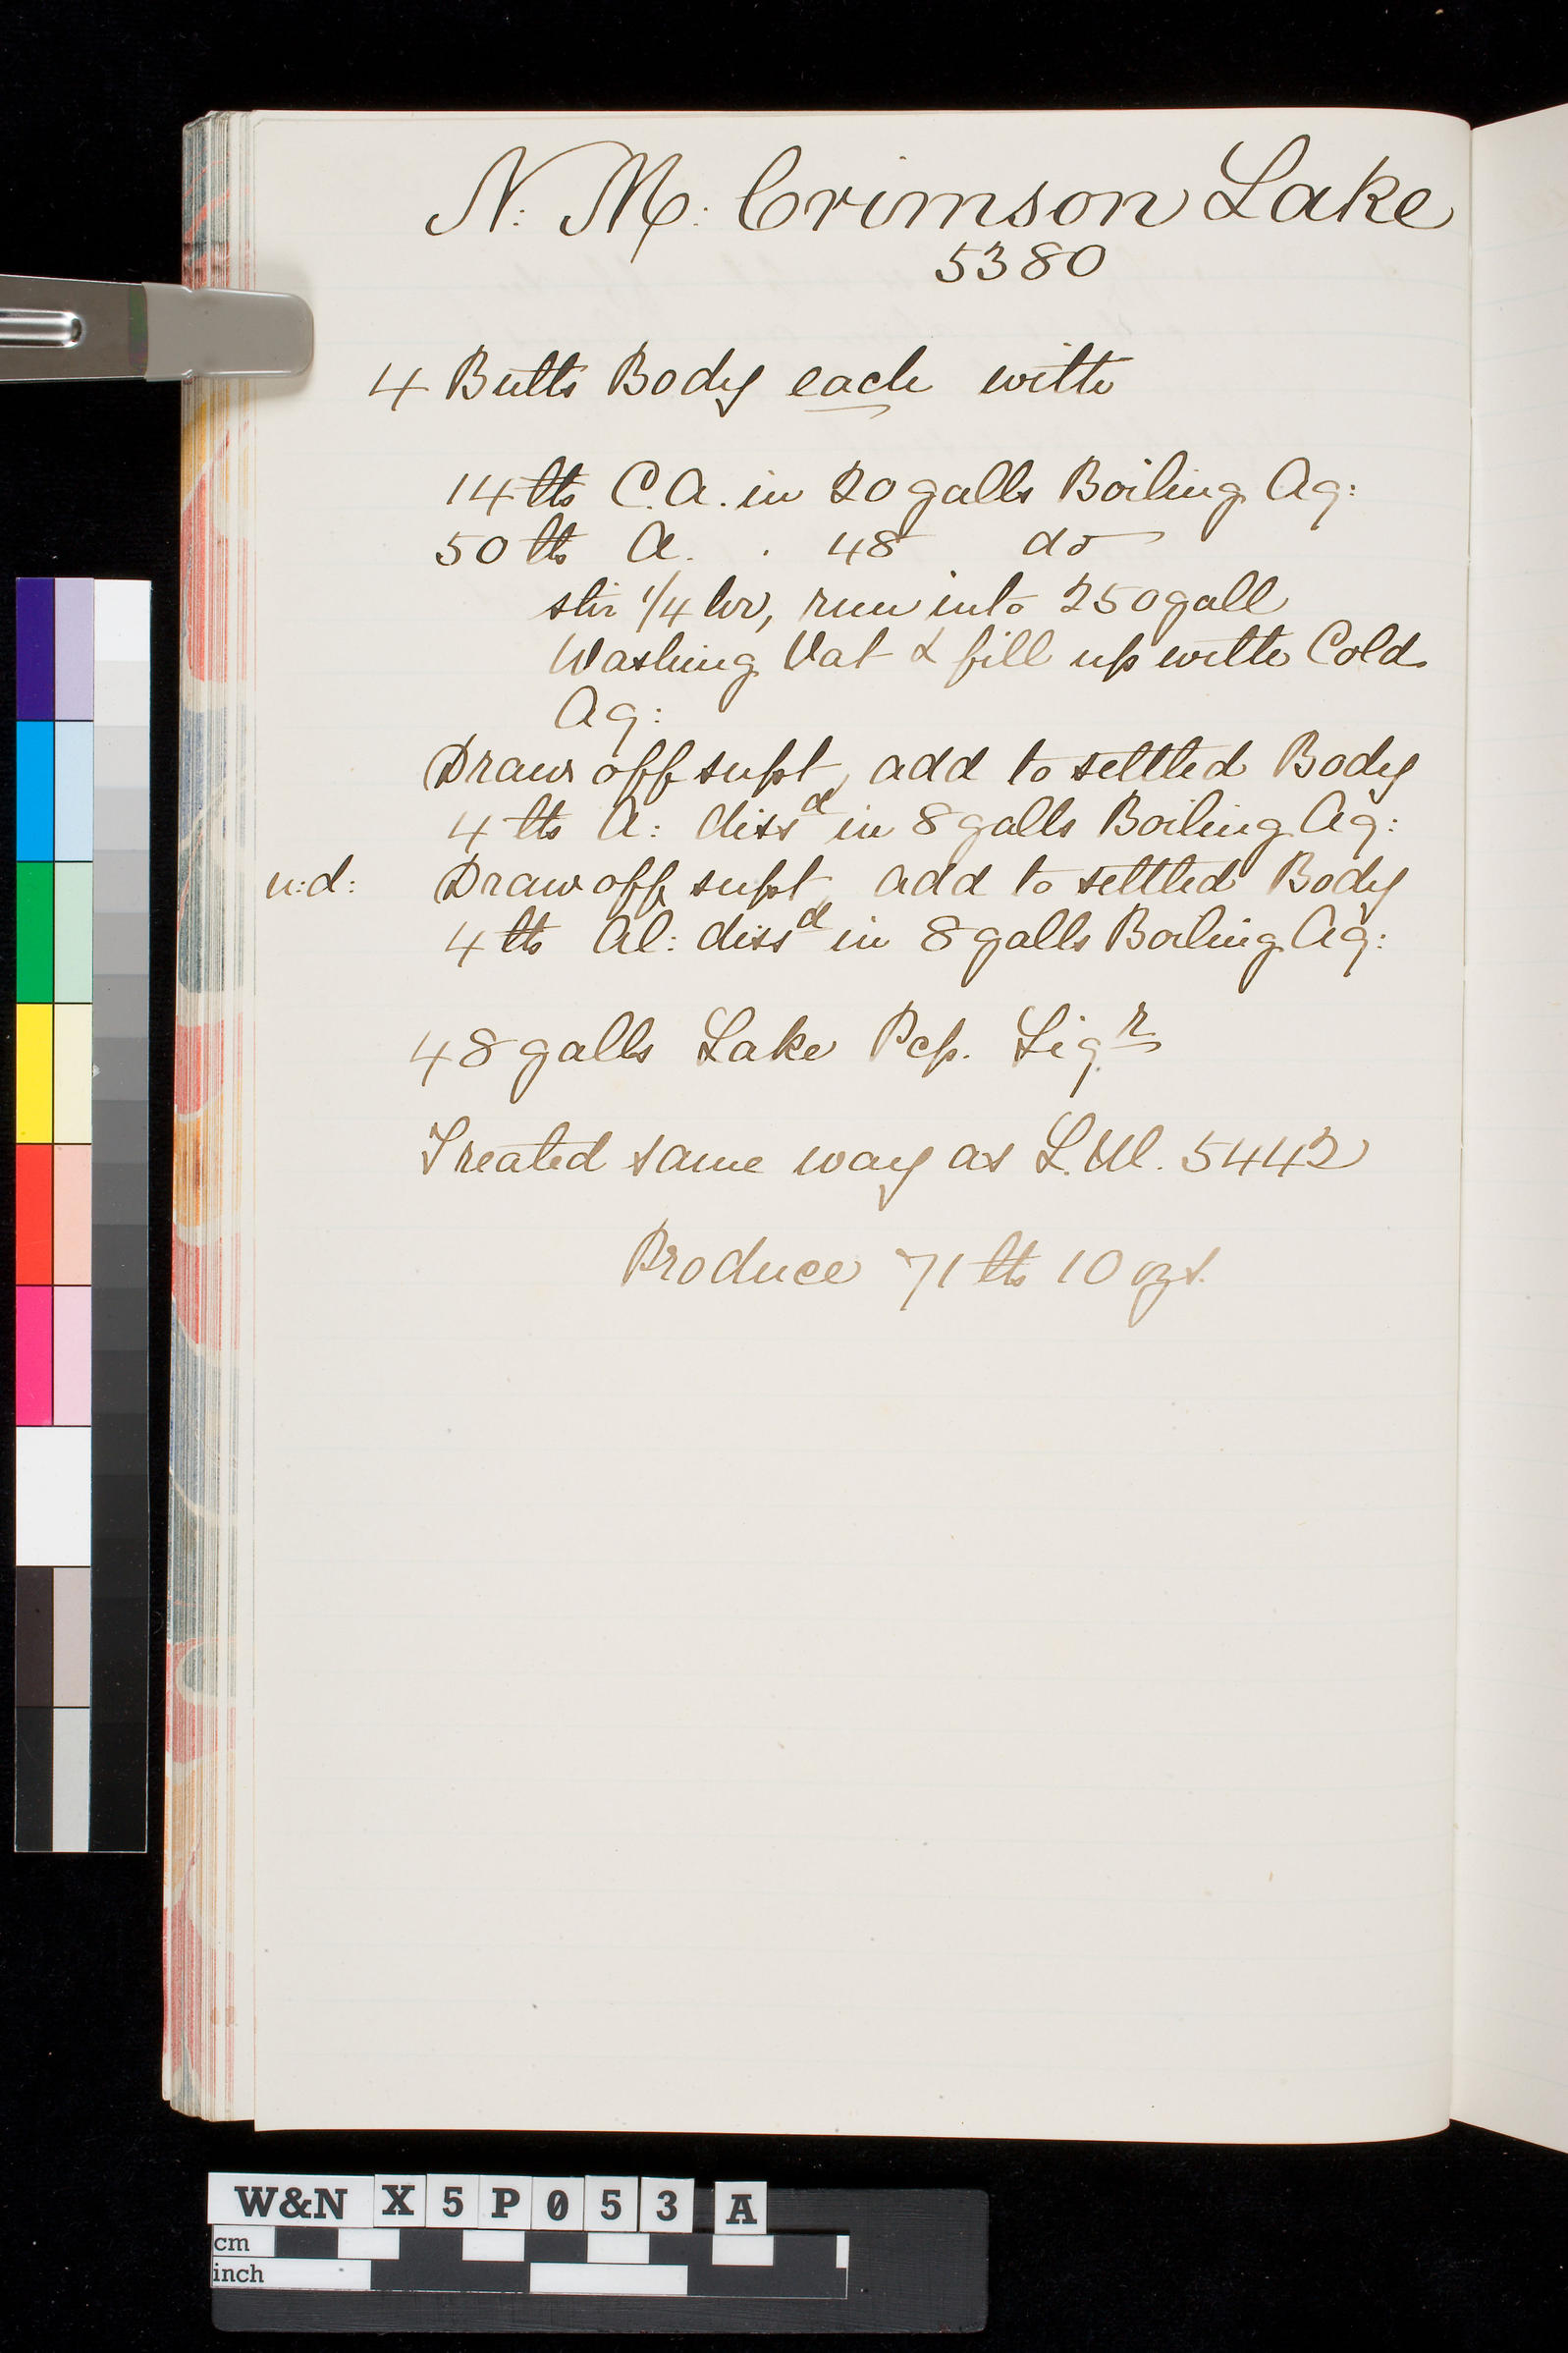 N: M: Crimson Lake
5380
4 Butts Body each with
14 lbs C.A. in 20 galls Boiling Aq:
50 lb A. . 48 do
stir 1/4 hr, run into 250 gall
Washing Vat & fill up with Cold
Aq:
Draw off supt, add to settled Body
4 lbs A: dissd in 8 galls Boiling Aq:
n:d: Draw off supt, add to settled Body
4 lb Al: dissd in 8 galls Boiling Aq:
48 galls Lake Pcp. Liqr
Treated same way as L.M. 5442
Produce 71 lb 10 ozs.
W&N X5P053 A
cm
inch